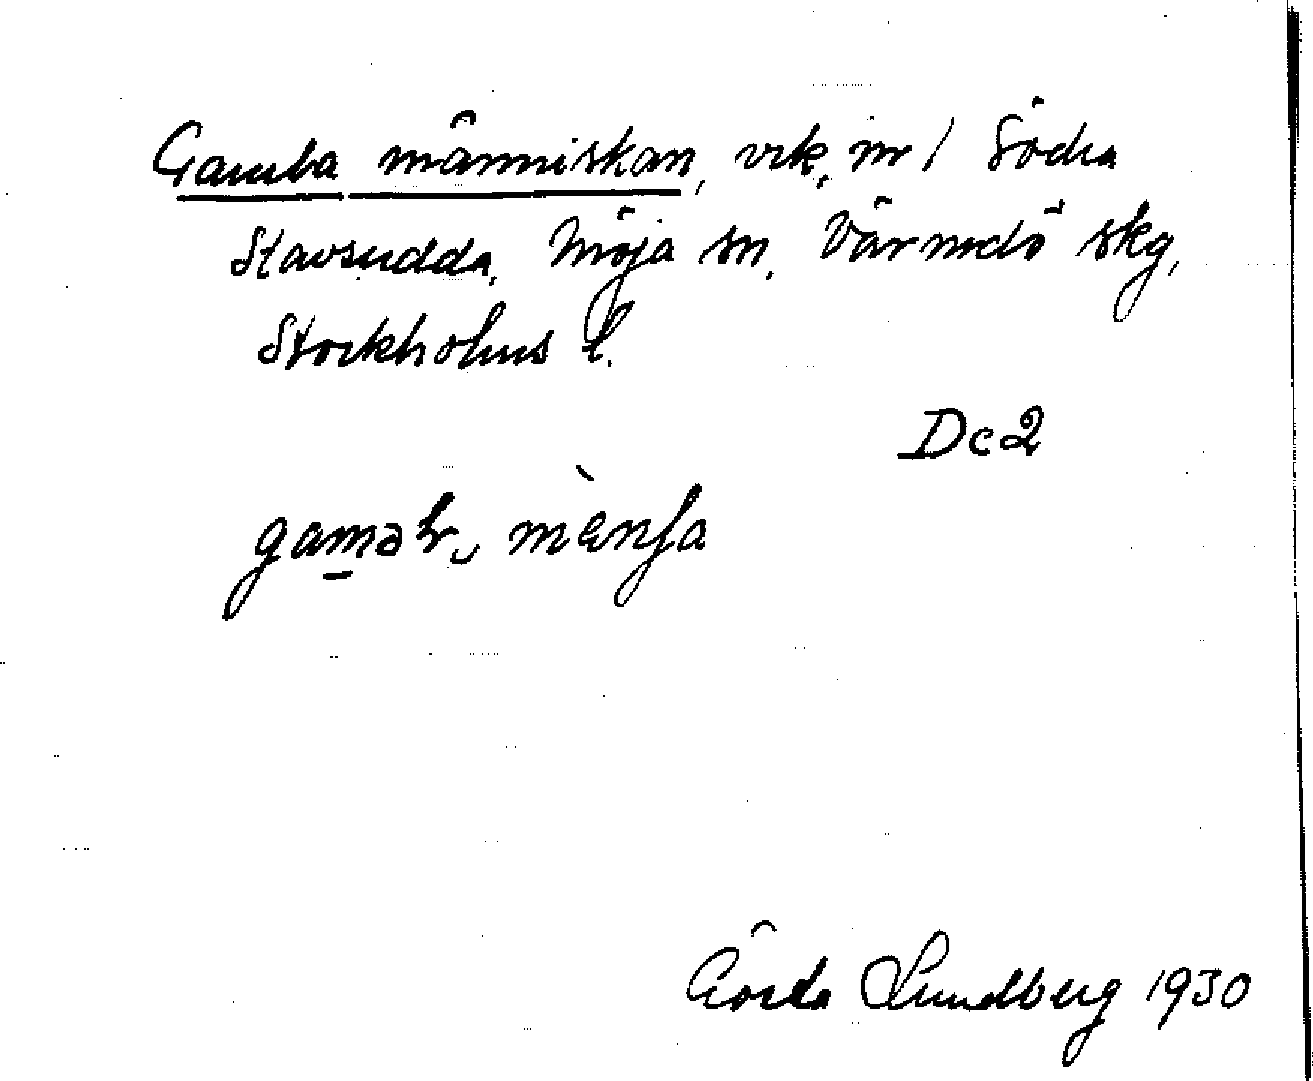 Gamba människan, vik, nr 1 Södra
Stavsudda, Möja sn, Värmdö skg,
Stockholms l.
Dc2
mènʃa
Gösta Lundberg 1930